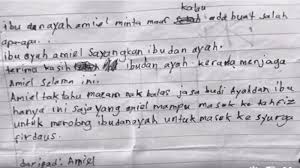 kalau
ibu dan ayah amiel minta maaf ada buat salah
apa-apa.
ibu ayah amiel Sayangkan ibu dan ayah.
terima kasih ibu dan ayah kerana menjaga
Amiel selama ini.
Amiel tak tahu macam mana nak balas jasa budi Ayah dan ibu
hanya ini saja yang amiel mampu masok ke tahfiz
untuk menolong ibu dan ayah untuk masok ke syurga
firdaus.
daripada: Amiel